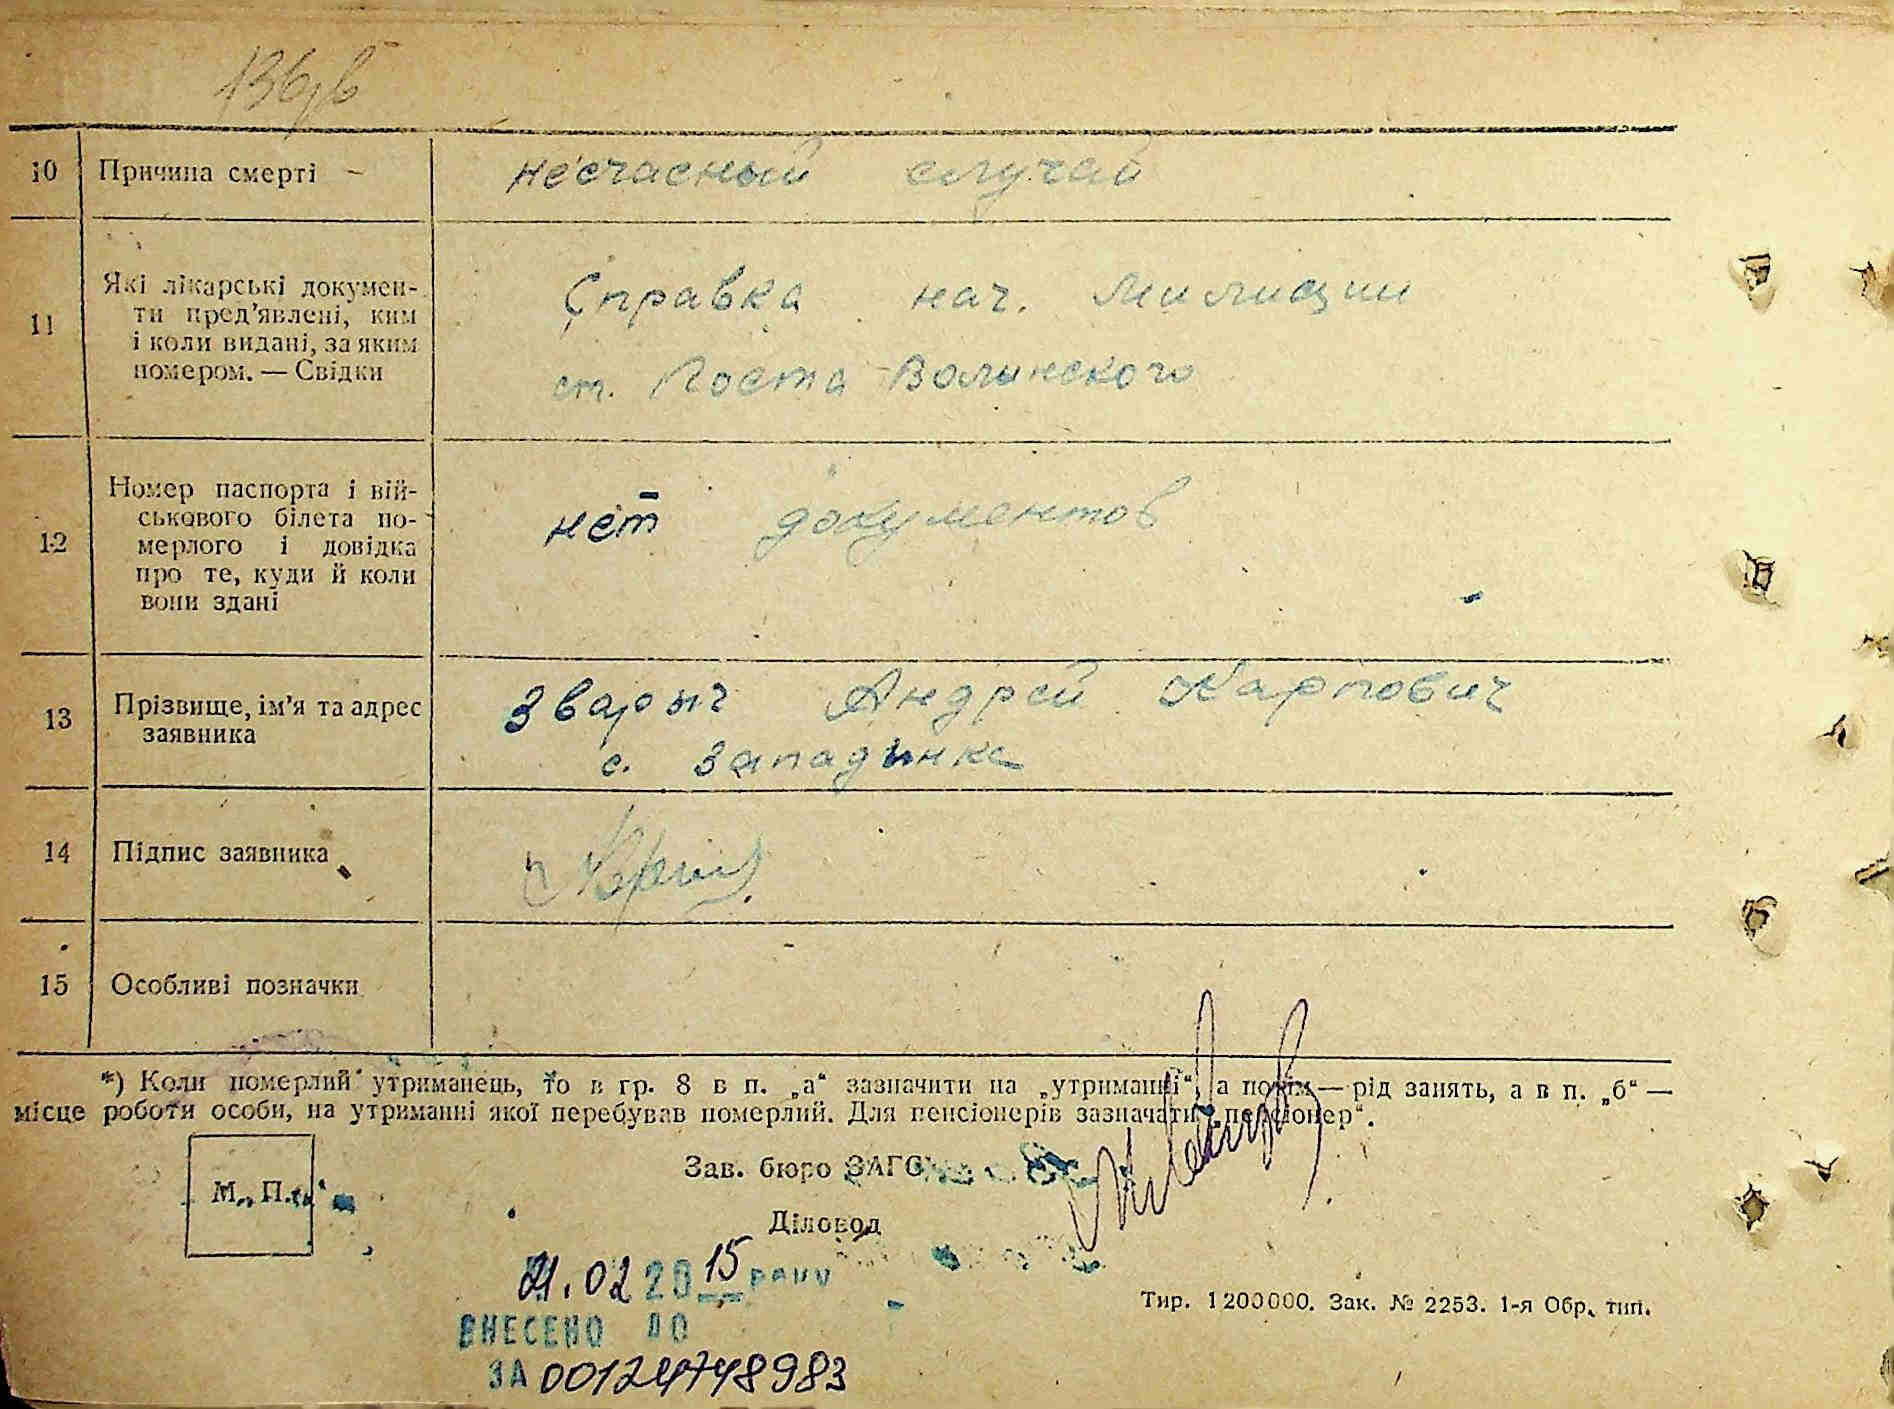 136/в
10 Причина смерті – несчасный случай
11 Які лікарські докумен-
ти пред'явлені, ким
і коли видані, за яким
номером. — Свідки
Справка нач. милиции
ст. Поста Волынского
12 Номер паспорта і вій-
ськового білета по-
мерлого і довідка
про те, куди й коли
вони здані
нет документов
13 Прізвище, ім'я та адрес
заявника
Зварыч Андрей Карпович
с. Западынка
14 Підпис заявника
15 Особливі позначки
*) Коли померлий утриманець, то в гр. 8 в п. „а“ зазначити на „утриманні“, а потім — рід занять, а в п. „б“ —
місце роботи особи, на утриманні якої перебував померлий. Для пенсіонерів зазначати „пенсіонер“.
М. П.
Зав. бюро ЗАГС
Діловод
21.02 2015 року
ВНЕСЕНО ДО
ЗА 00124748983
Тир. 1200000. Зак. № 2253. 1-я Обр. тип.